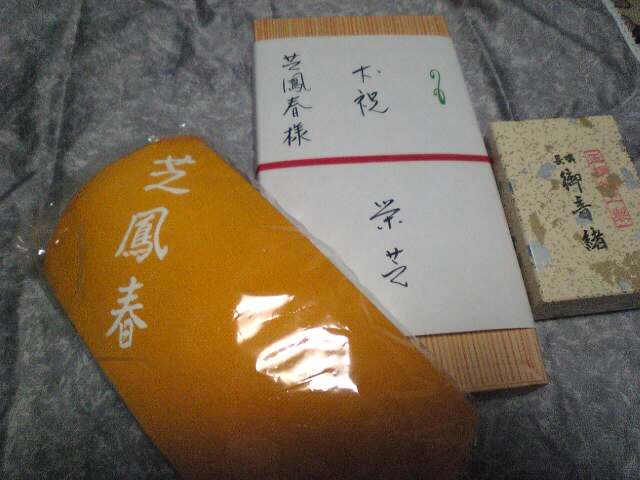 芝鳳春
芝鳳春様
お祝
栄芝
長唄
御音緒